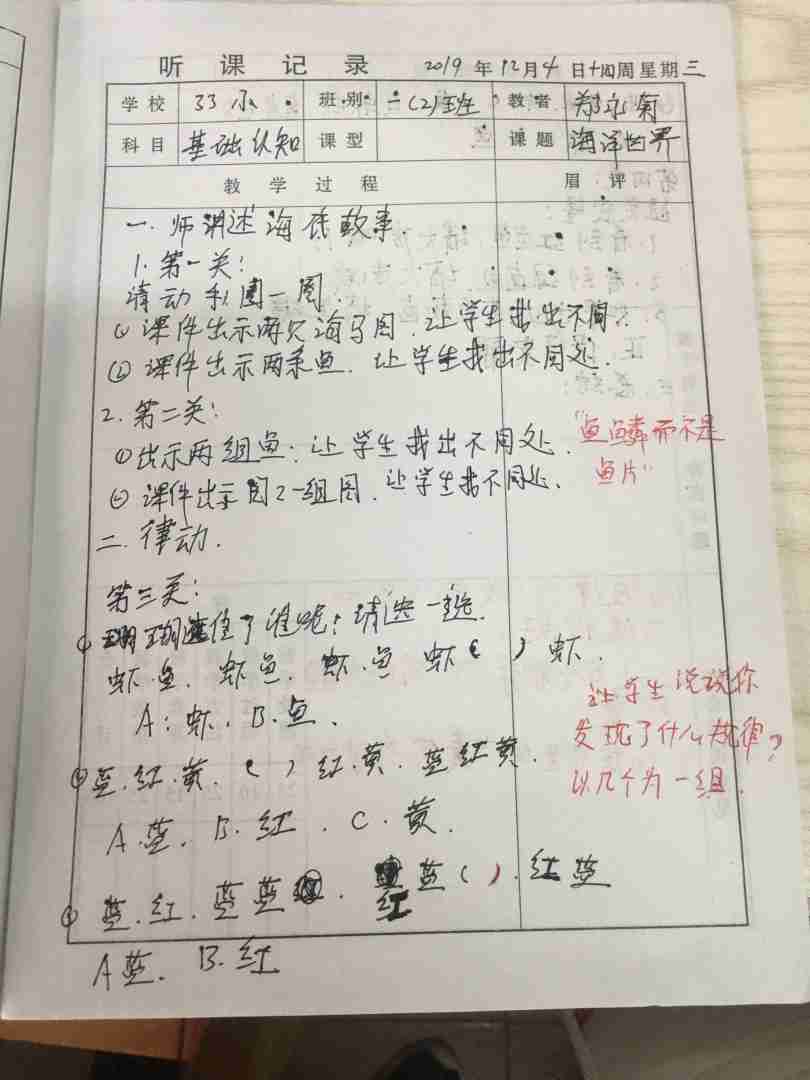 听课记录 2019年12月4日十四周星期三
学校 33小 班别 一(2)班 教者 郑永菊
科目 基础认知 课型 课题 海洋世界
教学过程 眉评
一.师讲述海底故事.
1.第一关:
请动手圈一圈.
① 课件出示两只海马图.让学生找出不同.
② 课件出示两条鱼.让学生找出不同处.
2.第二关:
①出示两组鱼:让学生找出不同处.
"鱼鳞而不是
鱼片"
② 课件出示图2一组图.让学生找不同处.
二.律动.
第三关:
① 珊瑚遮住了谁呢?请选一选.
虾.鱼.虾鱼.虾.鱼 虾( )虾.
A:虾.B.鱼.
让学生说说你
发现了什么规律?
以几个为一组.
② 蓝.红.黄.( )红.黄.蓝红黄.
A.蓝.B.红.C.黄.
蓝.红.蓝蓝 红 蓝( ).红蓝
A蓝.B.红